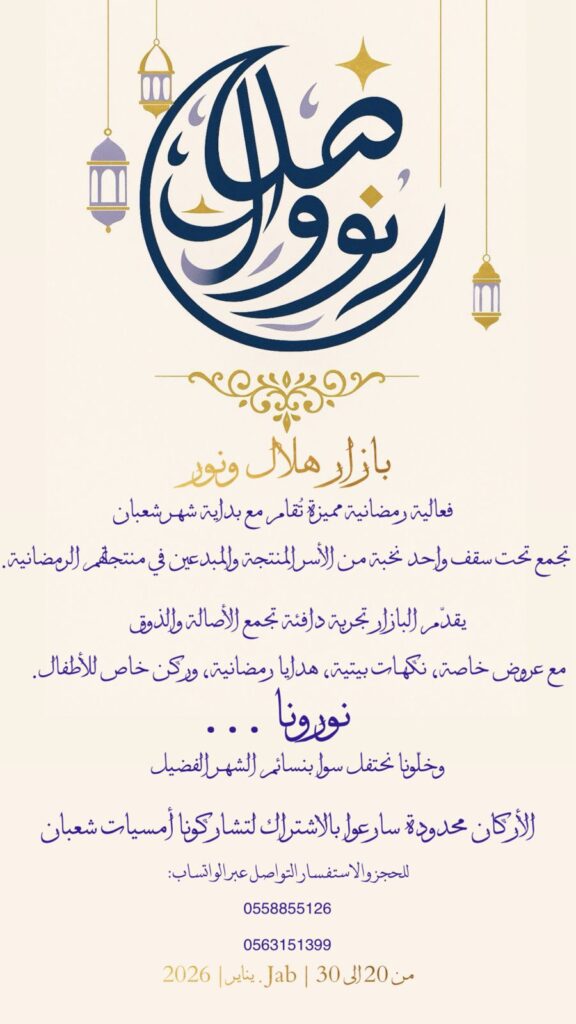 هلال
ونور
بازار هلال ونور
فعالية رمضانية مميزة تُقام مع بداية شهر شعبان
تجمع تحت سقف واحد نخبة من الأسر المنتجة والمبدعين في منتجاتهم الرمضانية.
يقدّم البازار تجربة دافئة تجمع الأصالة والذوق
مع عروض خاصة، نكهات بيتية، هدايا رمضانية، وركن خاص للأطفال.
نورونا ...
وخلونا نحتفل سوا بنسائم الشهر الفضيل
الأركان محدودة سارعوا بالاشتراك لتشاركونا أمسيات شعبان
للحجز والاستفسار التواصل عبر الواتساب:
0558855126
0563151399
من 20 الى 30 | Jab. يناير | 2026